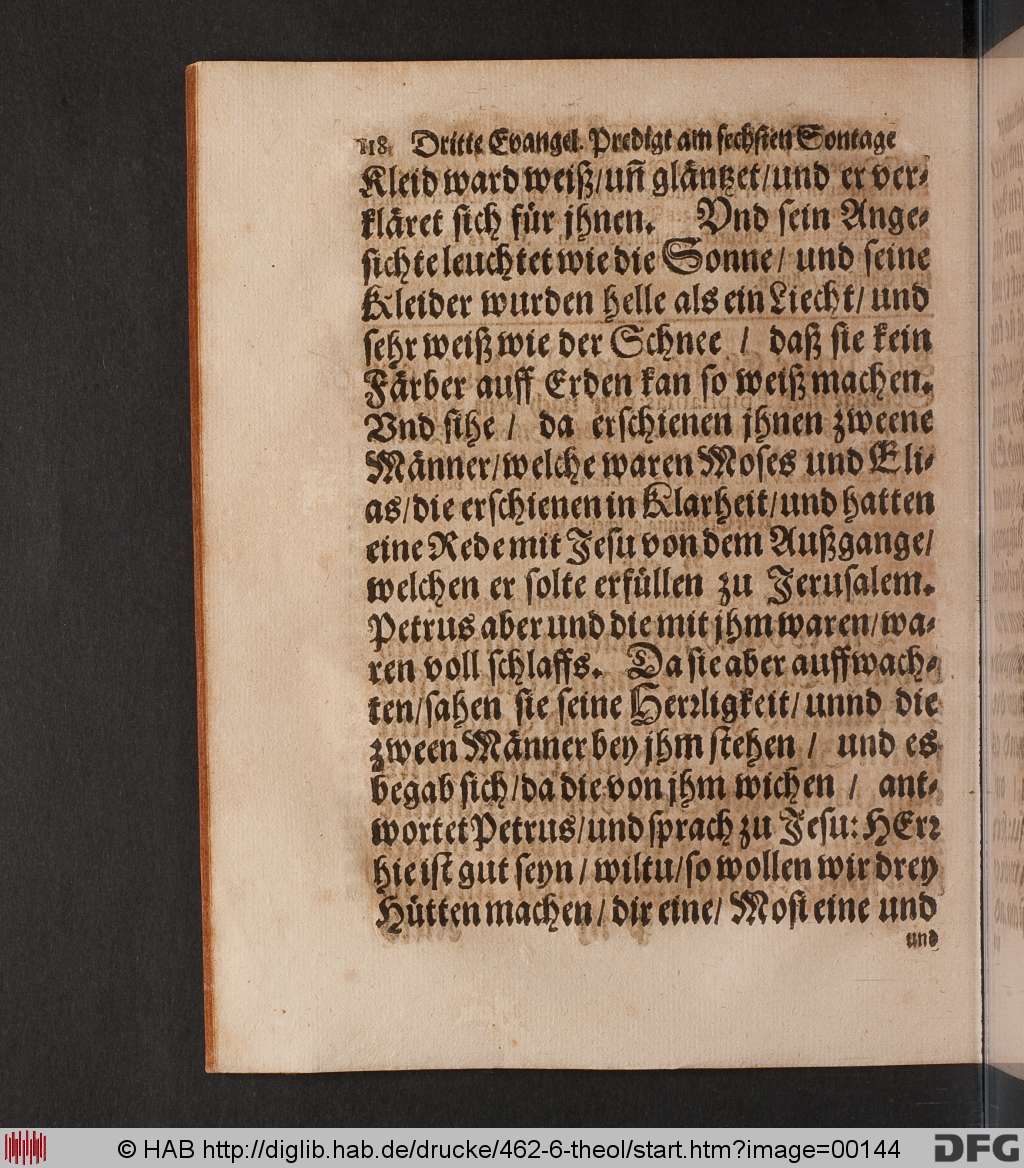 118 Dritte Evangel. Predigt am sechsten Sontage
Kleid ward weiß/uñ gläntzet/und er ver-
kläret sich für jhnen. Vnd sein Ange-
sichte leuchtet wie die Sonne/ und seine
Kleider wurden helle als ein Liecht/ und
sehr weiß wie der Schnee / daß sie kein
Färber auff Erden kan so weiß machen.
Vnd sihe / da erschienen jhnen zweene
Männer/welche waren Moses und Eli-
as/die erschienen in Klarheit/und hatten
eine Rede mit Jesu von dem Außgange/
welchen er solte erfüllen zu Jerusalem.
Petrus aber und die mit jhm waren/wa-
ren voll schlaffs. Da sie aber auffwach-
ten/sahen sie seine Herꝛligkeit/ unnd die
zween Männer bey jhm stehen / und es
begab sich/da die von jhm wichen / ant-
wortet Petrus/und sprach zu Jesu: HErꝛ
hie ist gut seyn / wiltu/so wollen wir drey
Hütten machen/ dir eine/ Mosi eine und
und
© HAB http://diglib.hab.de/drucke/462-6-theol/start.htm?image=00144
DFG